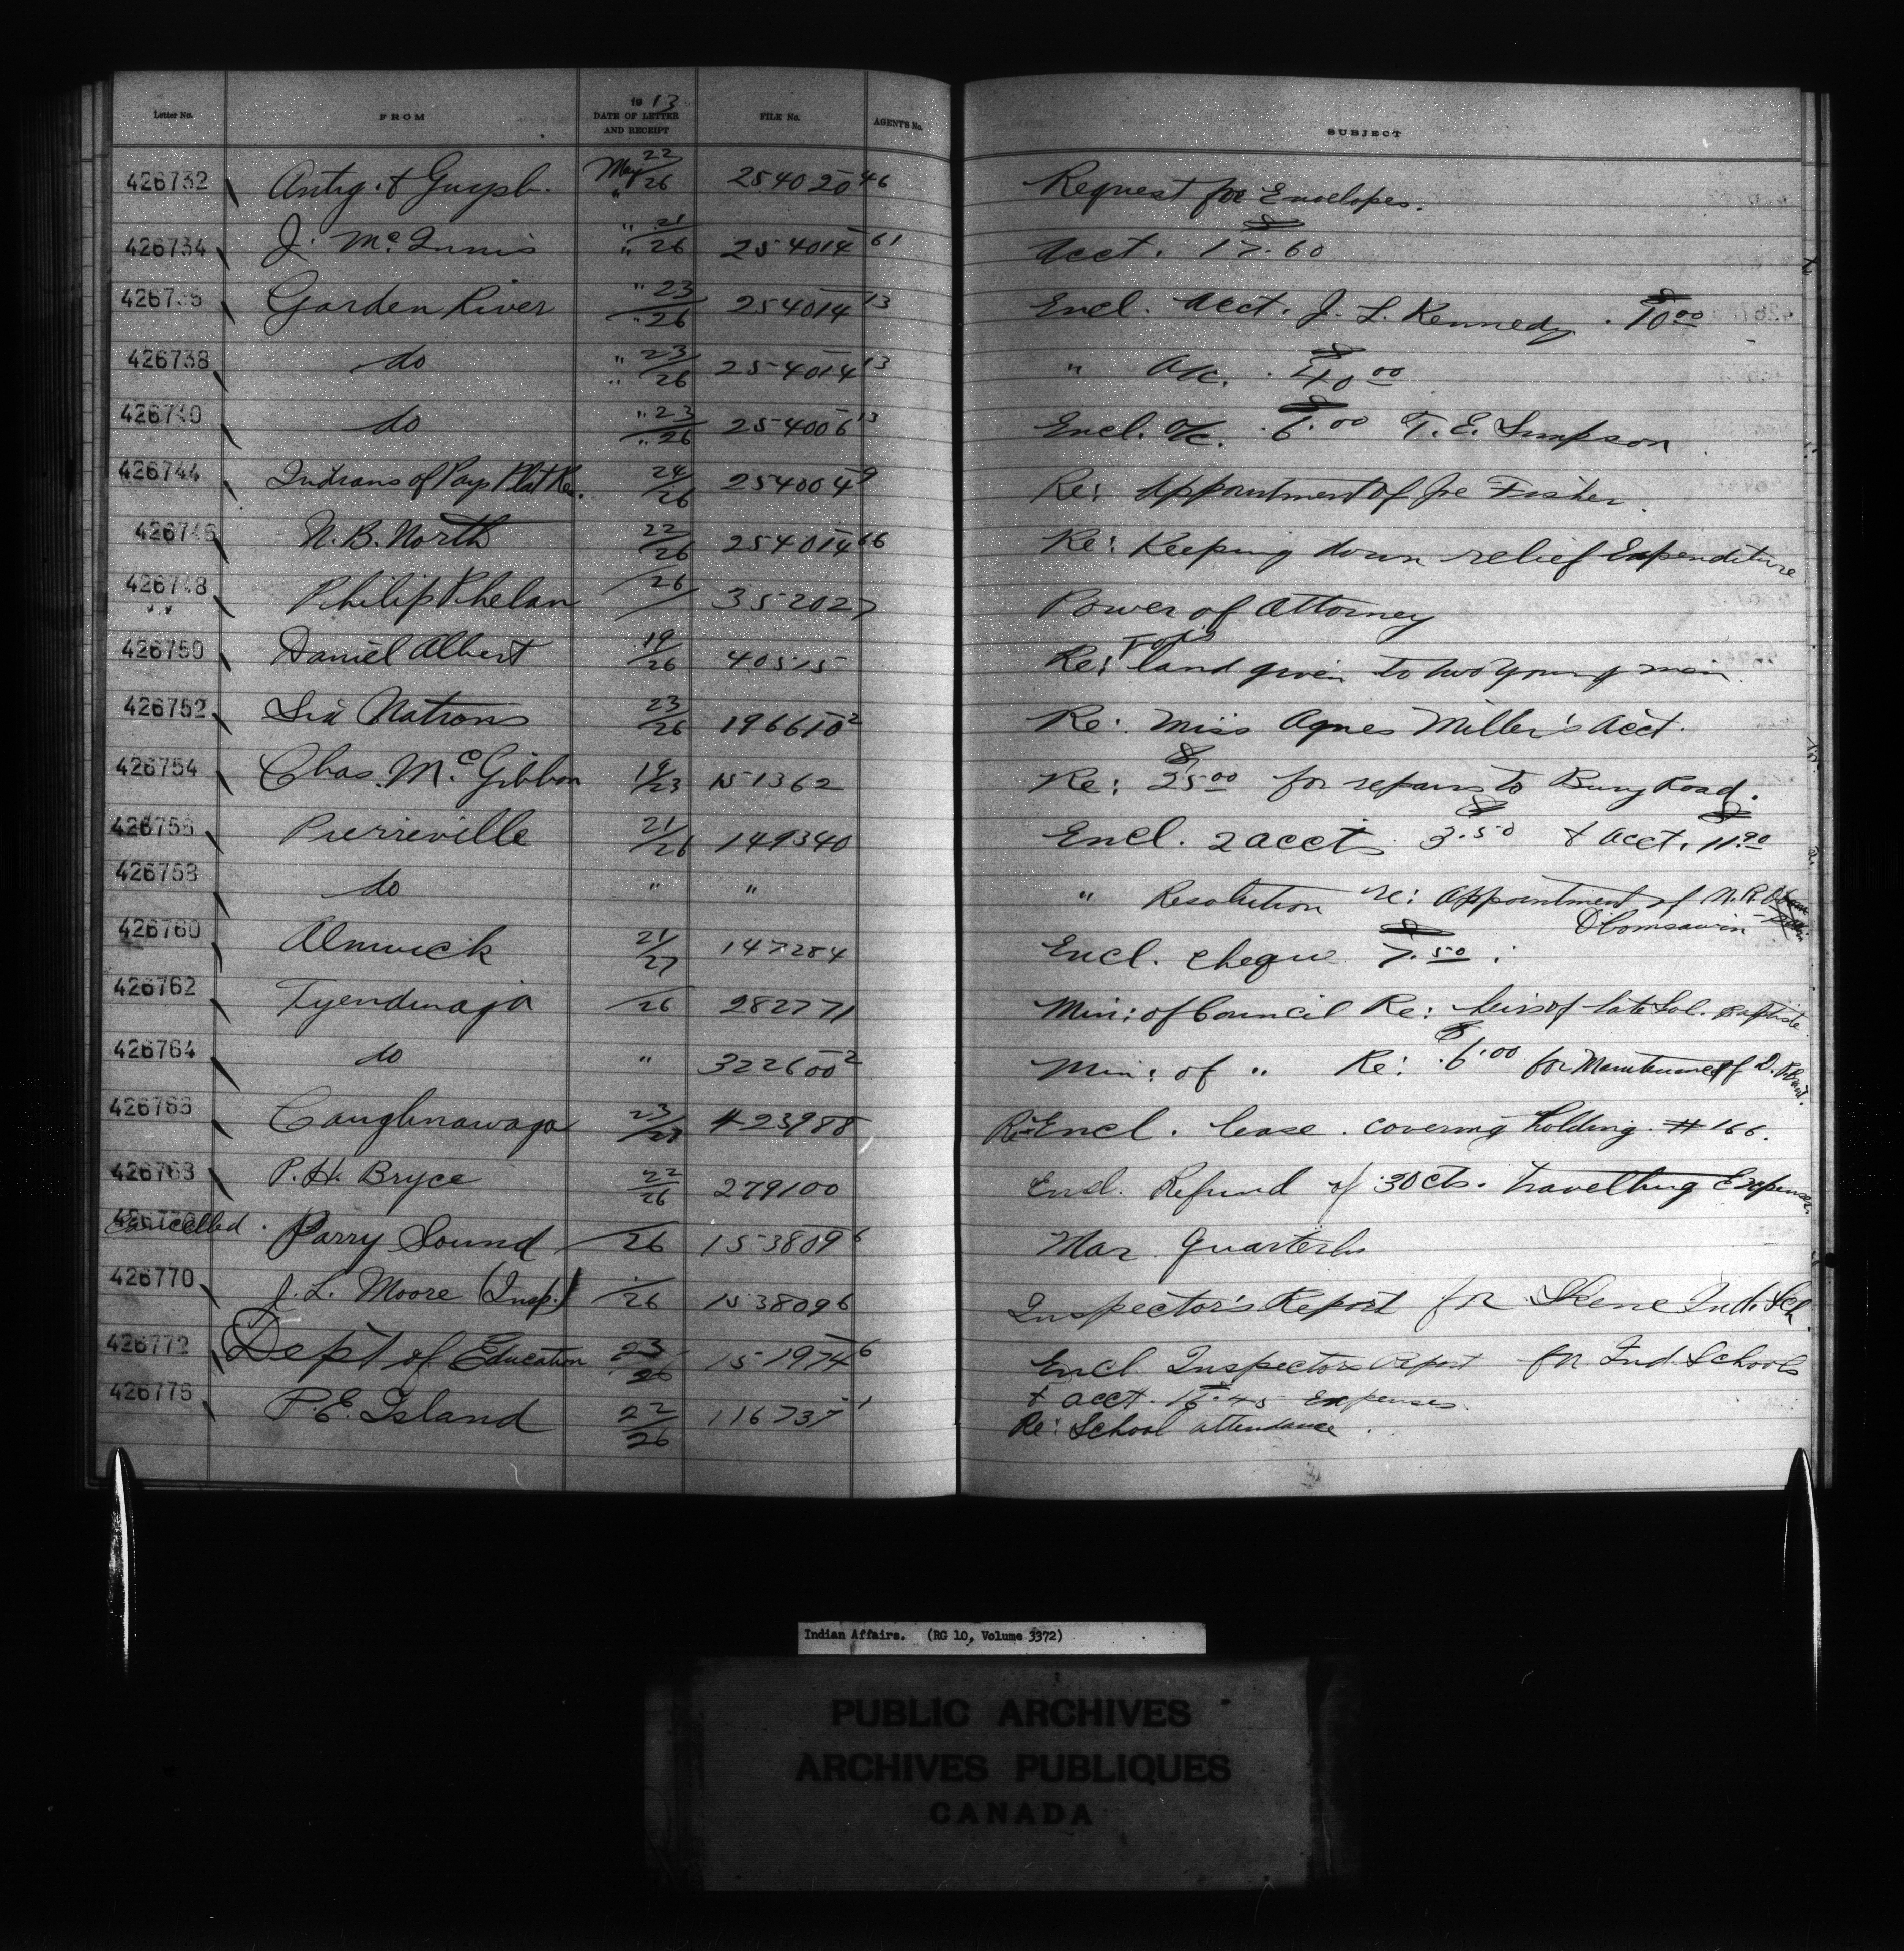 Letter No. FROM 1913 DATE OF LETTER AND RECEIPT FILE No. AGENT'S No. SUBJECT
426732 Antig. & Guysb. May 22/26 254020-46 Request for Envelopes.
426734 J. McInnis " 21/26 254014-61 Acct. $17.60
426736 Garden River " 23/26 254014-13 Encl. Acct. J. L. Kennedy. $10.00
426738 do " 23/26 254014-13 " a/c. $40.00
426740 do " 23/26 254006-13 Encl. a/c. $6.00 T. E. Simpson
426744 Indians of Pays Plat Res. 24/26 254004-9 Re: Appointment of Joe Fisher.
426746 N. B. North 22/26 254014-66 Re: Keeping down relief Expenditure
426748 Philip Phelan /26 352027 Power of Attorney
426750 Daniel Albert 19/26 40515 Re: land given to two young men.
426752 Six Nations 23/26 196610-2 Re: Miss Agnes Miller's Acct.
426754 Chas. McGibbon 19/23 151362 Re: $25.00 for repairs to Bury Road.
426756 Pierreville 21/26 149340 Encl. 2 accts $3.50 & acct. $11.90
426758 do " " " Resolution re: Appointment of N. R.
O'bomsawin
426760 Alnwick 21/27 147284 Encl. cheque $7.50.
426762 Tyendinaga /26 282771 Min: of Council Re: heirs of late Sol. Baptiste.
426764 do " 322600-2 Min: of " Re: $6.00 for Maintenance of D.
426766 Caughnawaga 23/27 423988 Re Encl. lease. covering holding #166.
426768 P. H. Bryce 22/26 279100 Encl. Refund of 30 cts. Travelling Expenses.
Cancelled. Parry Sound /26 153809-6 Mar. Quarterly
426770 J. L. Moore (Insp.) /26 153809-6 Inspector's Report for Skene Ind. Sch.
426772 Dept of Education 23/26 151974-6 Encl. Inspectors Report for Ind. Schools
& acct. $16.45 Expenses.
426776 P. E. Island 22/26 116737-1 Re: School attendance.
Indian Affairs. (RG 10, Volume 3372)
PUBLIC ARCHIVES
ARCHIVES PUBLIQUES
CANADA